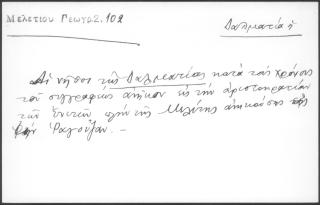 Μελετίου Γεωγρ. 2, 102
Δαλματία ἡ
Αἱ νῆσοι τῆς Δαλματίας κατὰ τοὺς χρόνους
τοῦ συγγραφέως ἀνῆκον εἰς τὴν ἀριστοκρατίαν
τῶν Ἐνετῶν πλὴν τῆς Μελίτης ἀνηκούσης εἰς
τὴν Ῥαγούζαν. —